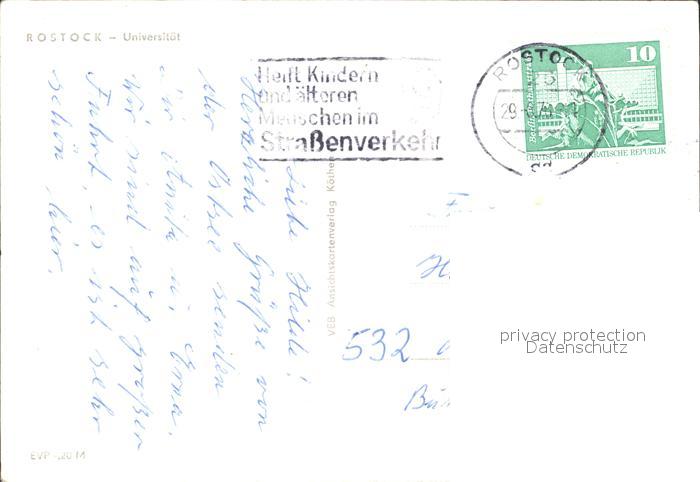 ROSTOCK – Universität
Helft Kindern
und älteren
Menschen im
Straßenverkehr
ROSTOCK
29
10
DEUTSCHE DEMOKRATISCHE REPUBLIK
Liebe Hilde!
Herzliche Grüße von
der Ostsee senden
Dir Anita u. Erna.
Wir sind auf großer
Fahrt, es ist sehr
schön hier.
VEB Ansichtskartenverlag Köthen
532
privacy protection
Datenschutz
EVP -,20 M